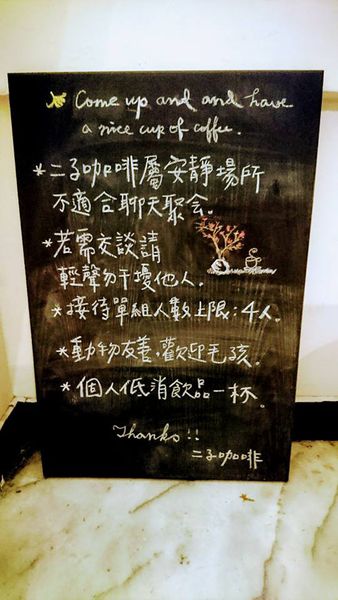 Come up and and have
a nice cup of coffee.
*二子咖啡屬安靜場所
不適合聊天聚会。
*若需交談請
輕聲勿干擾他人.
*接待單組人數上限:4人。
*動物友善,歡迎毛孩。
*個人低消飲品一杯。
Thanks!!
二子咖啡